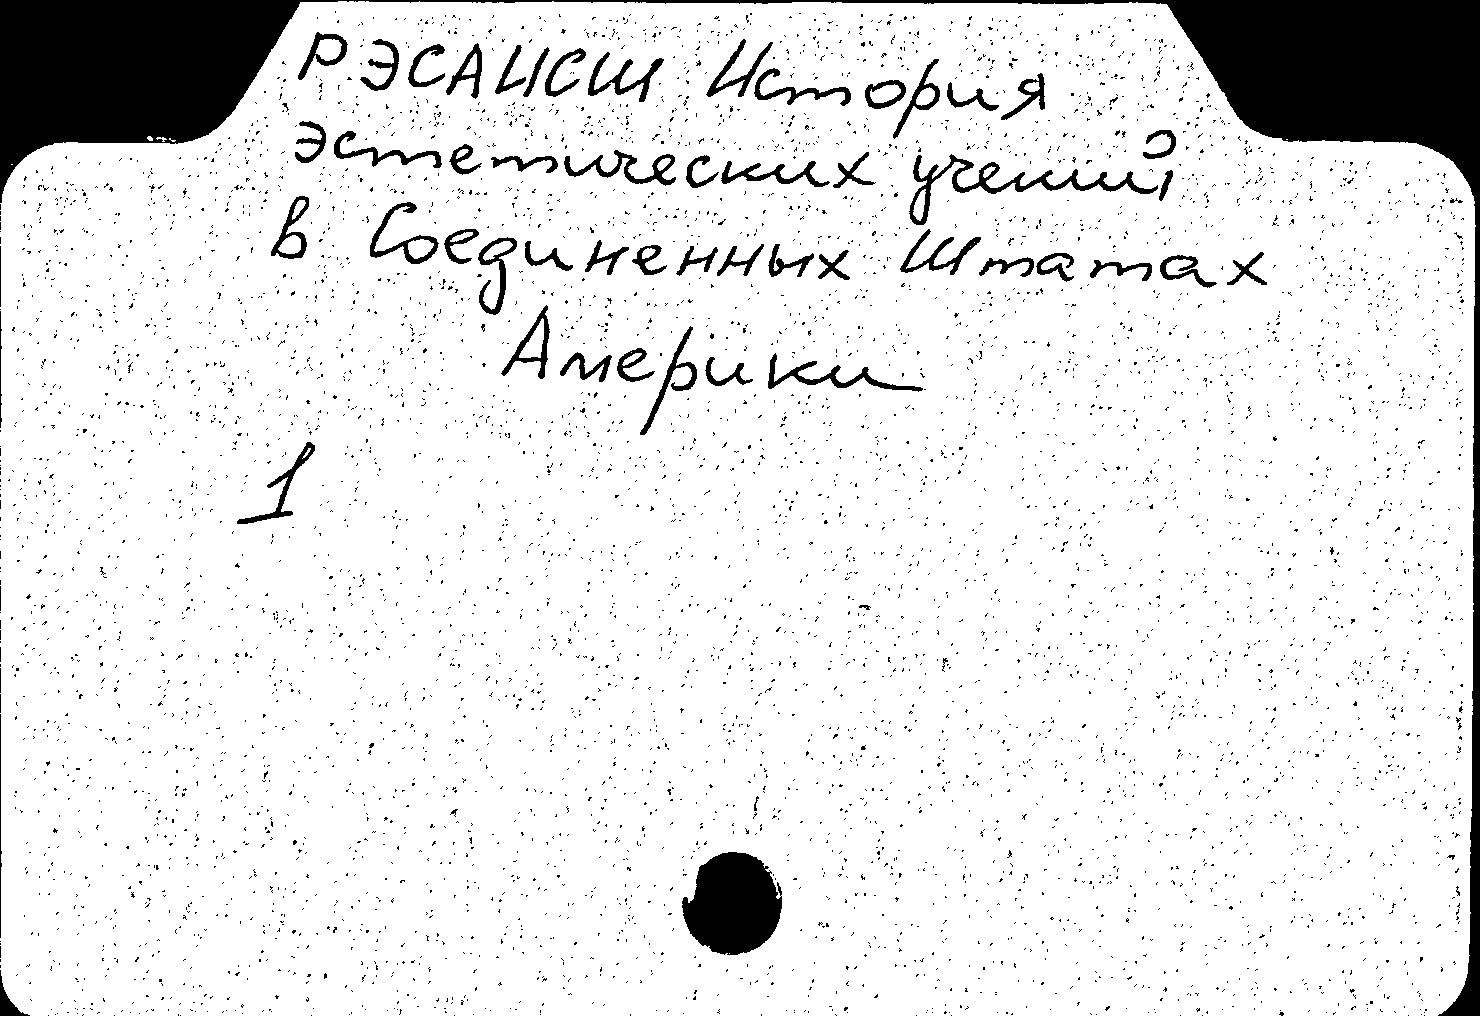 РЭСАИСШ История
эстетических учений
в Соединенных Штатах
Америки
1